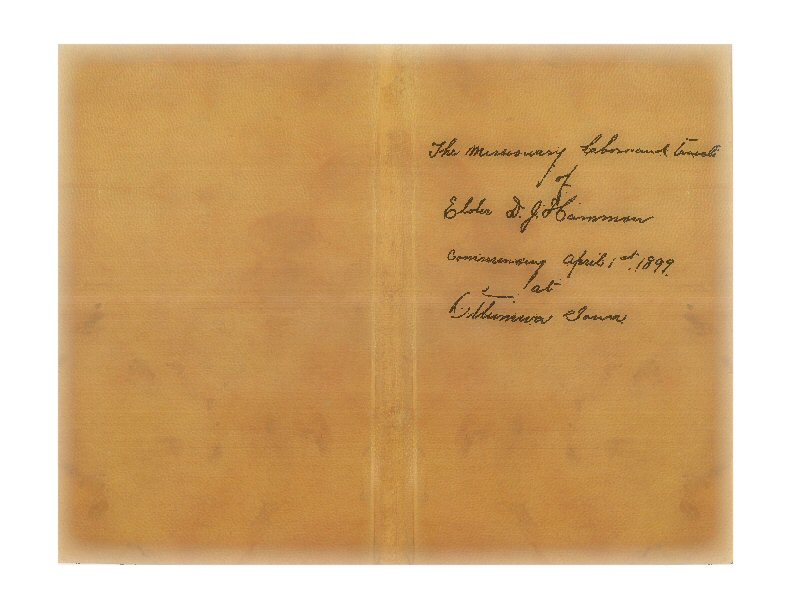 The Missionary Labors and travels
of
Elder D. J. Hammon
Commencing April 1st. 1899.
at
Ottumwa Iowa.